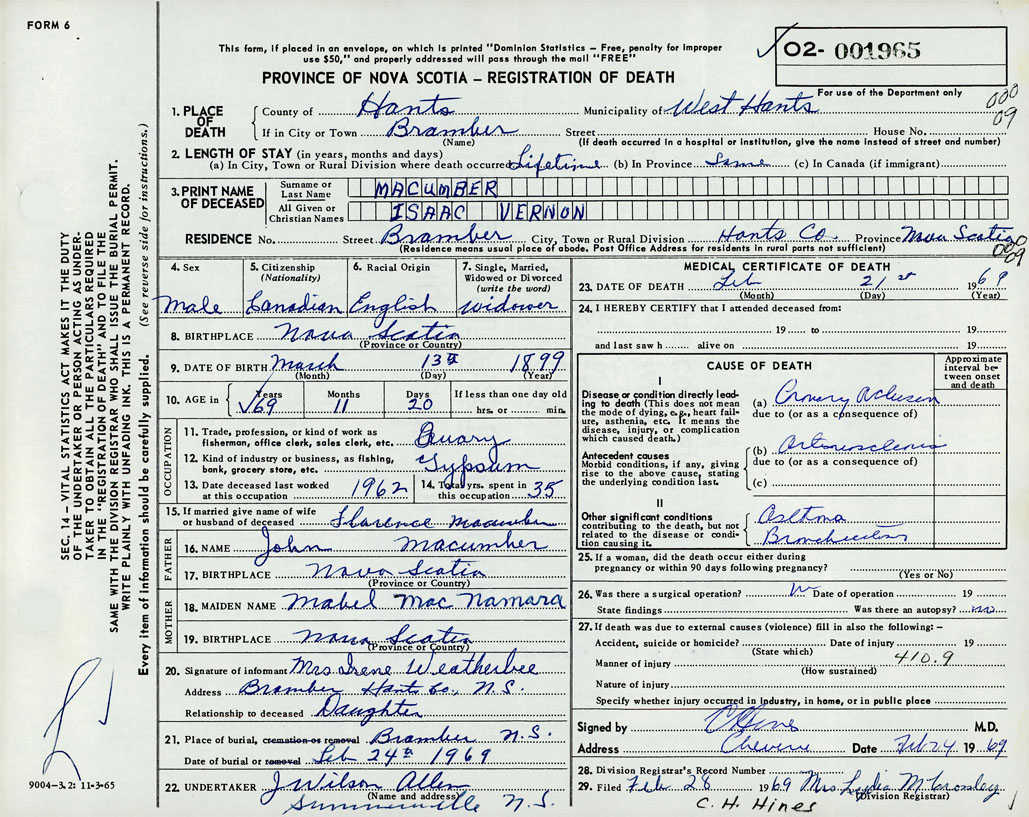 FORM 6
This form, if placed in an envelope, on which is printed "Dominion Statistics – Free, penalty for improper
use $50," and properly addressed will pass through the mail "FREE"
PROVINCE OF NOVA SCOTIA – REGISTRATION OF DEATH
02- 001965
For use of the Department only
000
09
1. PLACE OF DEATH
County of Hants Municipality of West Hants
If in City or Town Bramber Street House No.
(Name) (If death occurred in a hospital or institution, give the name instead of street and number)
2. LENGTH OF STAY (in years, months and days)
(a) In City, Town or Rural Division where death occurred Lifetime (b) In Province Same (c) In Canada (if immigrant)
3. PRINT NAME OF DECEASED
Surname or Last Name MACUMBER
All Given or Christian Names ISAAC VERNON
RESIDENCE No. Street Bramber City, Town or Rural Division Hants Co. Province Nova Scotia
(Residence means usual place of abode. Post Office Address for residents in rural parts not sufficient)
000
09
4. Sex
Male
5. Citizenship
(Nationality)
Canadian
6. Racial Origin
English
7. Single, Married, Widowed or Divorced
(write the word)
widower
8. BIRTHPLACE Nova Scotia
(Province or Country)
9. DATE OF BIRTH March 13th 1899
(Month) (Day) (Year)
10. AGE in Years Months Days If less than one day old
69 11 20 hrs. or min.
OCCUPATION
11. Trade, profession, or kind of work as
fisherman, office clerk, sales clerk, etc. Quary
12. Kind of industry or business, as fishing,
bank, grocery store, etc. Gypsum
13. Date deceased last worked
at this occupation 1962
14. Total yrs. spent in
this occupation 35
15. If married give name of wife
or husband of deceased Florence Macumber
FATHER
16. NAME John Macumber
17. BIRTHPLACE Nova Scotia
(Province or Country)
MOTHER
18. MAIDEN NAME Mabel Mac Namara
19. BIRTHPLACE Nova Scotia
(Province or Country)
20. Signature of informant Mrs Irene Weatherbee
Address Bramber Hants Co., N.S.
Relationship to deceased Daughter
21. Place of burial, cremation or removal Bramber N.S.
Date of burial or removal Feb 24th 1969
22. UNDERTAKER J Wilson Allen
(Name and address)
Summerville N.S.
MEDICAL CERTIFICATE OF DEATH
23. DATE OF DEATH Feb 21st 1969
(Month) (Day) (Year)
24. I HEREBY CERTIFY that I attended deceased from:
19 to 19
and last saw h alive on 19
CAUSE OF DEATH
Approximate interval between onset and death
I
Disease or condition directly leading to death (This does not mean the mode of dying, e.g., heart failure, asthenia, etc. It means the disease, injury, or complication which caused death.)
(a) Coronary Occlusion
due to (or as a consequence of)
Antecedent causes
Morbid conditions, if any, giving rise to the above cause, stating the underlying condition last.
(b)
due to (or as a consequence of)
(c)
II
Other significant conditions
contributing to the death, but not related to the disease or condition causing it.
Asthma
25. If a woman, did the death occur either during
pregnancy or within 90 days following pregnancy?
(Yes or No)
26. Was there a surgical operation? Date of operation 19
State findings Was there an autopsy? no
27. If death was due to external causes (violence) fill in also the following: –
Accident, suicide or homicide? Date of injury 19
(State which)
Manner of injury 410.9
(How sustained)
Nature of injury
Specify whether injury occurred in industry, in home, or in public place
Signed by C Hines M.D.
Address Date Feb 24 1969
28. Division Registrar's Record Number
29. Filed Feb 28 1969 Mrs. Lydia M Crossley
(Division Registrar)
C. H. HINES
SEC. 14 – VITAL STATISTICS ACT MAKES IT THE DUTY
OF THE UNDERTAKER OR PERSON ACTING AS UNDER-
TAKER TO OBTAIN ALL THE PARTICULARS REQUIRED
IN THE "REGISTRATION OF DEATH" AND TO FILE THE
SAME WITH THE DIVISION REGISTRAR WHO SHALL ISSUE THE BURIAL PERMIT.
WRITE PLAINLY WITH UNFADING INK. THIS IS A PERMANENT RECORD.
Every item of information should be carefully supplied. (See reverse side for instructions.)
9004–3.2: 11-3-65